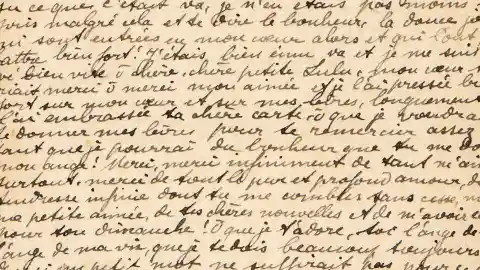 su ce que c'était va, je n'en étais pas moins
pris malgré cela et te dire le bonheur, la douce j
qui sont entrées en mon cœur alors et qui l'ont
battre bien fort! J'étais bien ému va et je me suis
bien vite ô chère, chère petite Lulu, mon cœur
criait merci ô merci mon aimée et je l'ai pressée bi
fort sur mon cœur et sur mes lèvres, longuement
l'ai embrassée ta chère carte. ô que je voudrai
te donner mes lèvres pour te remercier assez
tant que je pourrai du bonheur que tu me do
mon ange! Merci, merci infiniment de tant m'ai
surtout, merci de tout le pur et profond amour, d
tendresse infinie dont tu me combles sans cesse, m
ma petite aimée, de tes chères nouvelles et de m'avoir
pour ton dimanche! Ô que je t'adore, toi l'ange de
l'ange de ma vie, que je te dois beaucoup toujours
petit mot ne suffirait pas pour